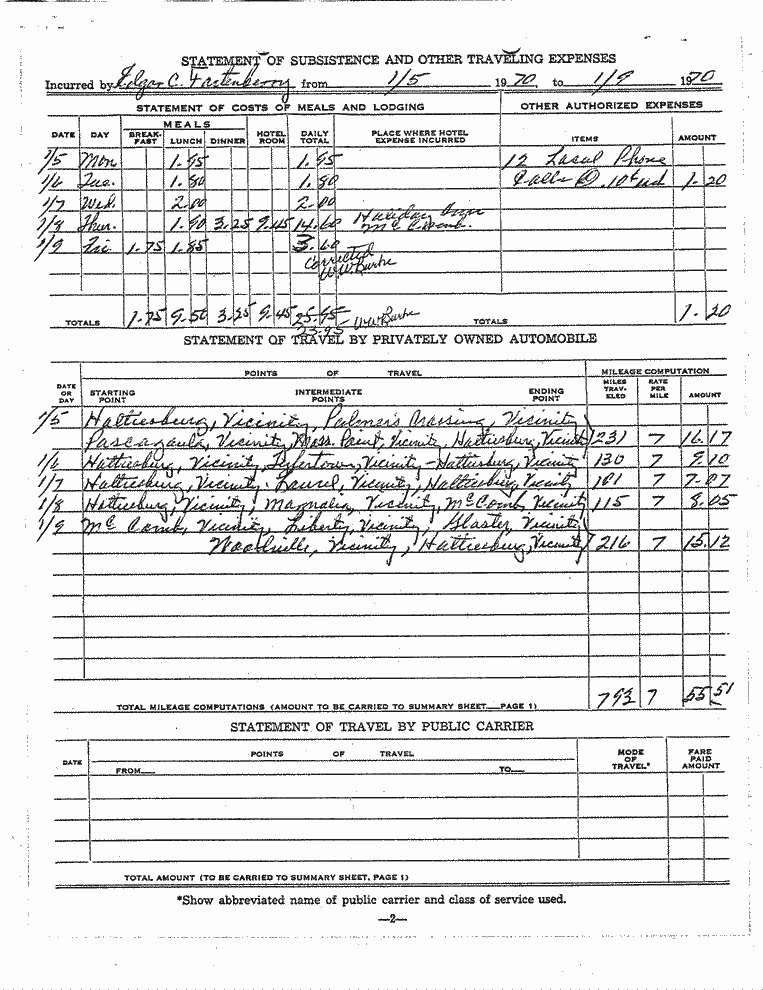 STATEMENT OF SUBSISTENCE AND OTHER TRAVELING EXPENSES
Incurred by Edgar C. Fortenberry from 1/5 1970, to 1/9 1970
STATEMENT OF COSTS OF MEALS AND LODGING OTHER AUTHORIZED EXPENSES
DATE DAY MEALS BREAK-FAST LUNCH DINNER HOTEL ROOM DAILY TOTAL PLACE WHERE HOTEL EXPENSE INCURRED ITEMS AMOUNT
1/5 Mon 1.95 1.95 12 Local Phone
1/6 Tue. 1.80 1.80 Calls @ .10¢ 1.20
1/7 Wed. 2.00 2.00
1/8 Thur. 1.90 3.25 9.45 14.60 Holiday Inn McComb.
1/9 Fri 1.75 1.85 3.60
Corrected
WWBurke
TOTALS 1.75 9.50 3.25 9.45 25.95 WWBurke TOTALS 1.20
23.95
STATEMENT OF TRAVEL BY PRIVATELY OWNED AUTOMOBILE
DATE OR DAY POINTS OF TRAVEL MILEAGE COMPUTATION
STARTING POINT INTERMEDIATE POINTS ENDING POINT MILES TRAV-ELED RATE PER MILE AMOUNT
1/5 Hattiesburg, Vicinity, Palmers Crossing, Vicinity
Pascagoula, Vicinity, Moss Point, Vicinity, Hattiesburg, Vicinity 231 7 16.17
1/6 Hattiesburg, Vicinity, Tylertown, Vicinity - Hattiesburg, Vicinity 130 7 9.10
1/7 Hattiesburg, Vicinity, Laurel, Vicinity, Hattiesburg, Vicinity 101 7 7.07
1/8 Hattiesburg, Vicinity, Magnolia, Vicinity, McComb, Vicinity 115 7 8.05
1/9 McComb, Vicinity, Liberty, Vicinity, Gloster, Vicinity
Woodville, Vicinity, Hattiesburg, Vicinity 216 7 15.12
TOTAL MILEAGE COMPUTATIONS (AMOUNT TO BE CARRIED TO SUMMARY SHEET—PAGE 1) 793 7 55.51
STATEMENT OF TRAVEL BY PUBLIC CARRIER
DATE POINTS OF TRAVEL MODE OF TRAVEL* FARE PAID AMOUNT
FROM— TO—
TOTAL AMOUNT (TO BE CARRIED TO SUMMARY SHEET, PAGE 1)
*Show abbreviated name of public carrier and class of service used.
—2—